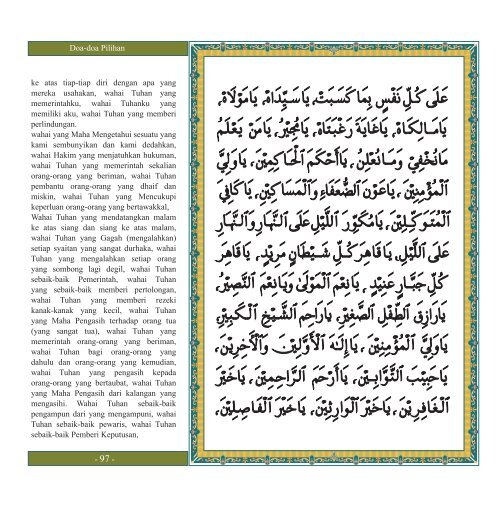 Doa-doa Pilihan
ke atas tiap-tiap diri dengan apa yang
mereka usahakan, wahai Tuhan yang
memerintahku, wahai Tuhanku yang
memiliki aku, wahai Tuhan yang memberi
perlindungan.
wahai yang Maha Mengetahui sesuatu yang
kami sembunyikan dan kami dedahkan,
wahai Hakim yang menjatuhkan hukuman,
wahai Tuhan yang memerintah sekalian
orang-orang yang beriman, wahai Tuhan
pembantu orang-orang yang dhaif dan
miskin, wahai Tuhan yang Mencukupi
keperluan orang-orang yang bertawakkal,
Wahai Tuhan yang mendatangkan malam
ke atas siang dan siang ke atas malam,
wahai Tuhan yang Gagah (mengalahkan)
setiap syaitan yang sangat durhaka, wahai
Tuhan yang mengalahkan setiap orang
yang sombong lagi degil, wahai Tuhan
sebaik-baik Pemerintah, wahai Tuhan
yang sebaik-baik memberi pertolongan,
wahai Tuhan yang memberi rezeki
kanak-kanak yang kecil, wahai Tuhan
yang Maha Pengasih terhadap orang tua
(yang sangat tua), wahai Tuhan yang
memerintah orang-orang yang beriman,
wahai Tuhan bagi orang-orang yang
dahulu dan orang-orang yang kemudian,
wahai Tuhan yang pengasih kepada
orang-orang yang bertaubat, wahai Tuhan
yang Maha Pengasih dari kalangan yang
mengasihi. Wahai Tuhan sebaik-baik
pengampun dari yang mengampuni, wahai
Tuhan sebaik-baik pewaris, wahai Tuhan
sebaik-baik Pemberi Keputusan,
- 97 -
عَلَى كُلِّ نَفْسٍ بِمَا كَسَبَتْ، يَاسَيِّدَاهُ، يَامَوْلَاهُ،
يَامَالِكَاهُ، يَاغَايَةَ رَغْبَتَاهُ، يَامُجِيْرُ، يَامَنْ يَعْلَمُ
مَانُخْفِيْ وَمَانُعْلِنُ، يَاأَحْكَمَ الْحَاكِمِيْنَ، يَاوَلِيَّ
الْمُؤْمِنِيْنَ، يَاعَوْنَ الضُّعَفَاءِ وَالْمَسَاكِيْنِ، يَاكَافِيَ
الْمُتَوَكِّلِيْنَ، يَامُكَوِّرَ اللَّيْلِ عَلَى النَّهَارِ وَالنَّهَارِ
عَلَى اللَّيْلِ، يَاقَاهِرَ كُلِّ شَيْطَانٍ مَرِيْدٍ، يَاقَاهِرَ
كُلِّ جَبَّارٍ عَنِيْدٍ، يَانِعْمَ الْمَوْلَى وَيَانِعْمَ النَّصِيْرُ،
يَارَازِقَ الطِّفْلِ الصَّغِيْرِ، يَارَاحِمَ الشَّيْخِ الْكَبِيْرِ،
يَاوَلِيَّ الْمُؤْمِنِيْنَ، يَاإِلَهَ الْأَوَّلِيْنَ وَالْآخِرِيْنَ،
يَاحَبِيْبَ التَّوَّابِيْنَ، يَاأَرْحَمَ الرَّاحِمِيْنَ، يَاخَيْرَ
الْغَافِرِيْنَ، يَاخَيْرَ الْوَارِثِيْنَ، يَاخَيْرَ الْفَاصِلِيْنَ،